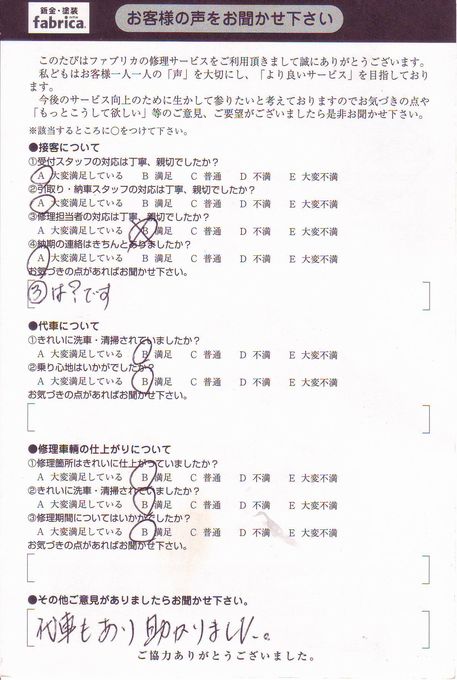 鈑金・塗装
fabrica.
お客様の声をお聞かせ下さい
このたびはファブリカの修理サービスをご利用頂きまして誠にありがとうございます。
私どもはお客様一人一人の「声」を大切にし、「より良いサービス」を目指しており
ます。
今後のサービス向上のために生かして参りたいと考えておりますのでお気づきの点や
「もっとこうして欲しい」等のご意見、ご要望がございましたら是非お聞かせ下さい。
※該当するところに○をつけて下さい。
●接客について
①受付スタッフの対応は丁寧、親切でしたか?
A 大変満足している B 満足 C 普通 D 不満 E 大変不満
②引取り・納車スタッフの対応は丁寧、親切でしたか?
A 大変満足している B 満足 C 普通 D 不満 E 大変不満
③修理担当者の対応は丁寧、親切でしたか?
A 大変満足している B 満足 C 普通 D 不満 E 大変不満
④納期の連絡はきちんとありましたか?
A 大変満足している B 満足 C 普通 D 不満 E 大変不満
お気づきの点があればお聞かせ下さい。
③は?です
●代車について
①きれいに洗車・清掃されていましたか?
A 大変満足している B 満足 C 普通 D 不満 E 大変不満
②乗り心地はいかがでしたか?
A 大変満足している B 満足 C 普通 D 不満 E 大変不満
お気づきの点があればお聞かせ下さい。
●修理車輌の仕上がりについて
①修理箇所はきれいに仕上がっていましたか?
A 大変満足している B 満足 C 普通 D 不満 E 大変不満
②きれいに洗車・清掃されていましたか?
A 大変満足している B 満足 C 普通 D 不満 E 大変不満
③修理期間についてはいかがでしたか?
A 大変満足している B 満足 C 普通 D 不満 E 大変不満
お気づきの点があればお聞かせ下さい。
●その他ご意見がありましたらお聞かせ下さい。
代車もあり助かりました。
ご協力ありがとうございました。